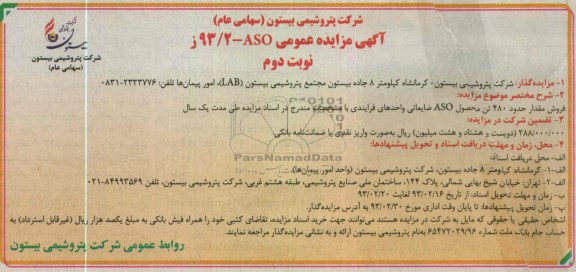 شرکت پتروشیمی بیستون (سهامی عام)
آگهی مزایده عمومی ASO-۹۳/۲ ز
نوبت دوم
شرکت پتروشیمی بیستون
(سهامی عام)
۱- مزایده‌گذار: شرکت پتروشیمی بیستون- کرمانشاه کیلومتر ۸ جاده بیستون مجتمع پتروشیمی بیستون (LAB)، امور پیمان‌ها تلفن: ۲۳۳۳۷۷۶-۰۸۳۱
۲- شرح مختصر موضوع مزایده:
فروش مقدار حدود ۴۸۰ تن محصول ASO ضایعاتی واحدهای فرایندی با مشخصات مندرج در اسناد مزایده طی مدت یک سال
۳- تضمین شرکت در مزایده:
۲۸۸/۰۰۰/۰۰۰ (دویست و هشتاد و هشت میلیون) ریال به‌صورت واریز نقدی یا ضمانت‌نامه بانکی
۴- محل، زمان و مهلت دریافت اسناد و تحویل پیشنهادها:
الف- محل دریافت اسناد:
الف-۱- کرمانشاه، کیلومتر ۸ جاده بیستون، شرکت پتروشیمی بیستون (واحد امور پیمان‌ها)
الف-۲- تهران: خیابان شیخ بهایی شمالی، پلاک ۱۴۴، ساختمان ملی صنایع پتروشیمی، طبقه هشتم غربی، شرکت پتروشیمی بیستون، تلفن ۸۴۹۹۳۵۶۹-۰۲۱
ب- زمان و مهلت تحویل اسناد: از تاریخ ۹۳/۰۲/۱۶ لغایت ۹۳/۰۲/۲۰
پ- زمان تحویل پیشنهادها: تا پایان وقت اداری مورخ ۹۳/۰۲/۳۰ به آدرس مزایده‌گذار.
اشخاص حقیقی یا حقوقی که مایل به شرکت در مزایده هستند می‌توانند جهت خرید اسناد مزایده، تقاضای کتبی خود را همراه فیش بانکی به مبلغ یکصد هزار ریال (غیرقابل استرداد) به
حساب جام بانک ملت شماره ۶۵۴۷۲۰۲۹/۹۶ به‌نام پتروشیمی بیستون ارائه و به نشانی مزایده‌گذار مراجعه نمایند.
روابط عمومی شرکت پتروشیمی بیستون
ParsNamadData